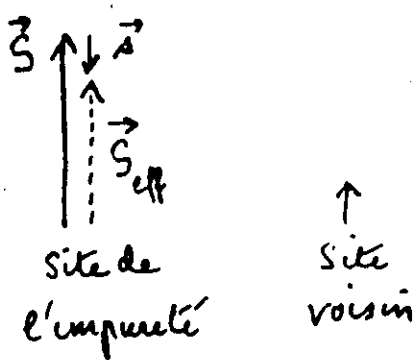 S s
S eff
site de
l'impureté
site
voisin